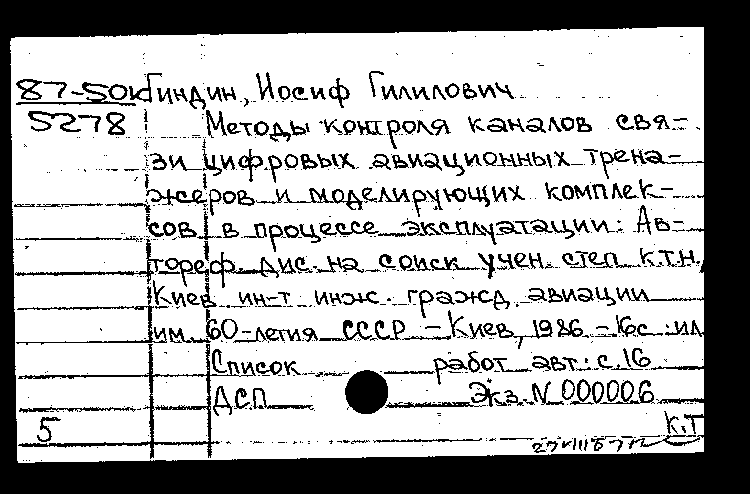 87-50к Гиндин, Иосиф Гилилович
5278 Методы контроля каналов свя-
зи цифровых авиационных трена-
жеров и моделирующих комплек-
сов в процессе эксплуатации: Ав-
тореф. дис. на соиск учен. степ к.т.н.
Киев ин-т инж. гражд. авиации
им. 60-летия СССР - Киев, 1986 - 16с : ил
Список работ авт: с. 16
ДСП Экз. N 000006
5 К.Т